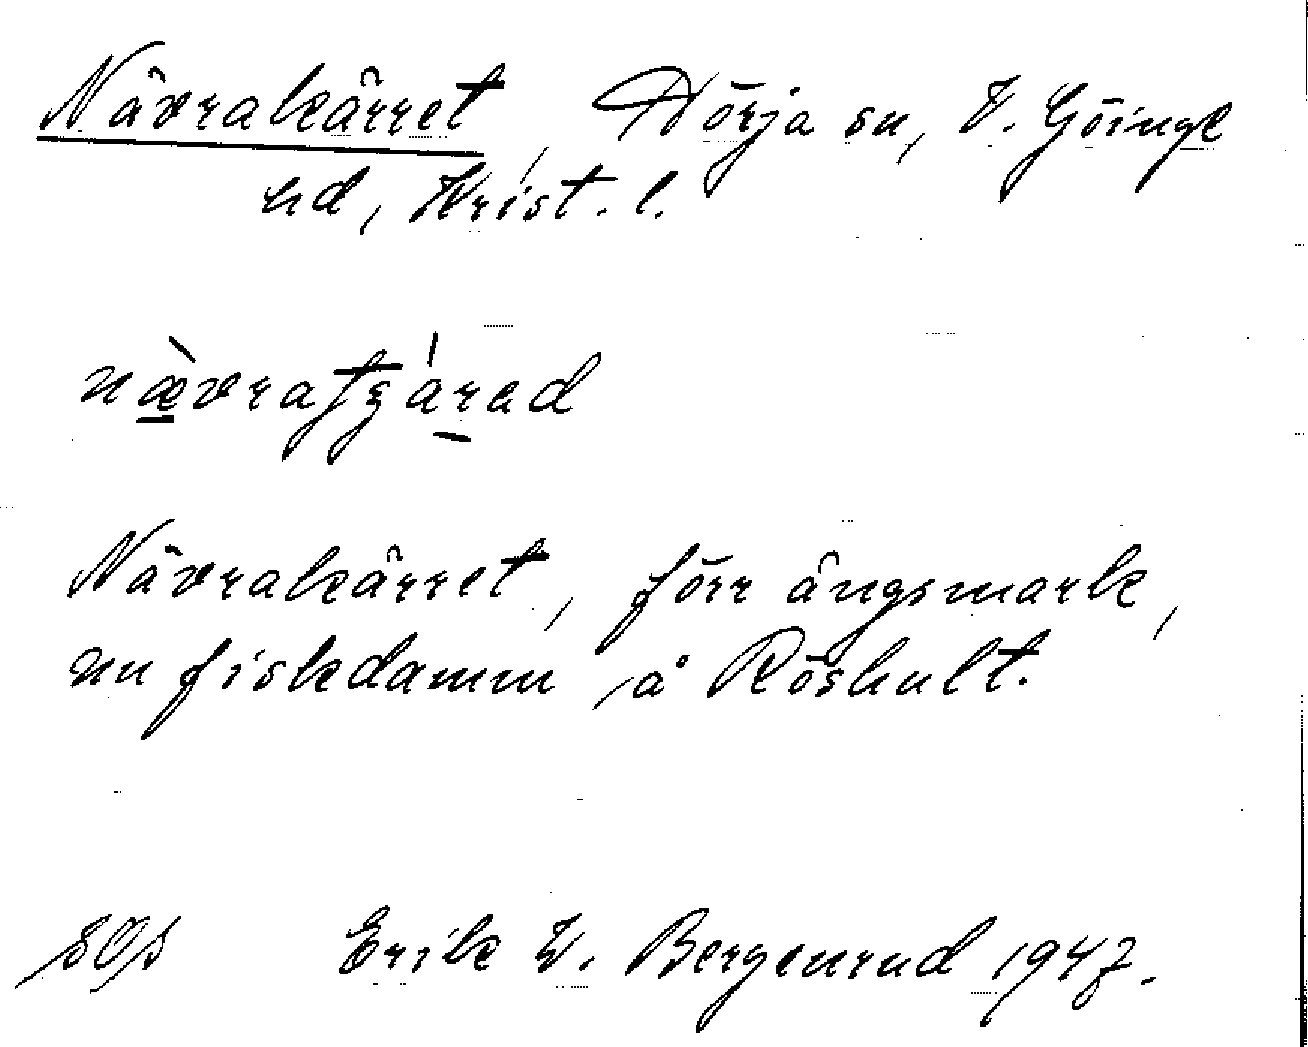 Nävrakärret, Nörja sn, V. Göinge
hd, Krist. l.
nävrakärret, förr ängsmark,
nu fiskdamm, å Röshult.
Erik W. Bergenrud 1947.